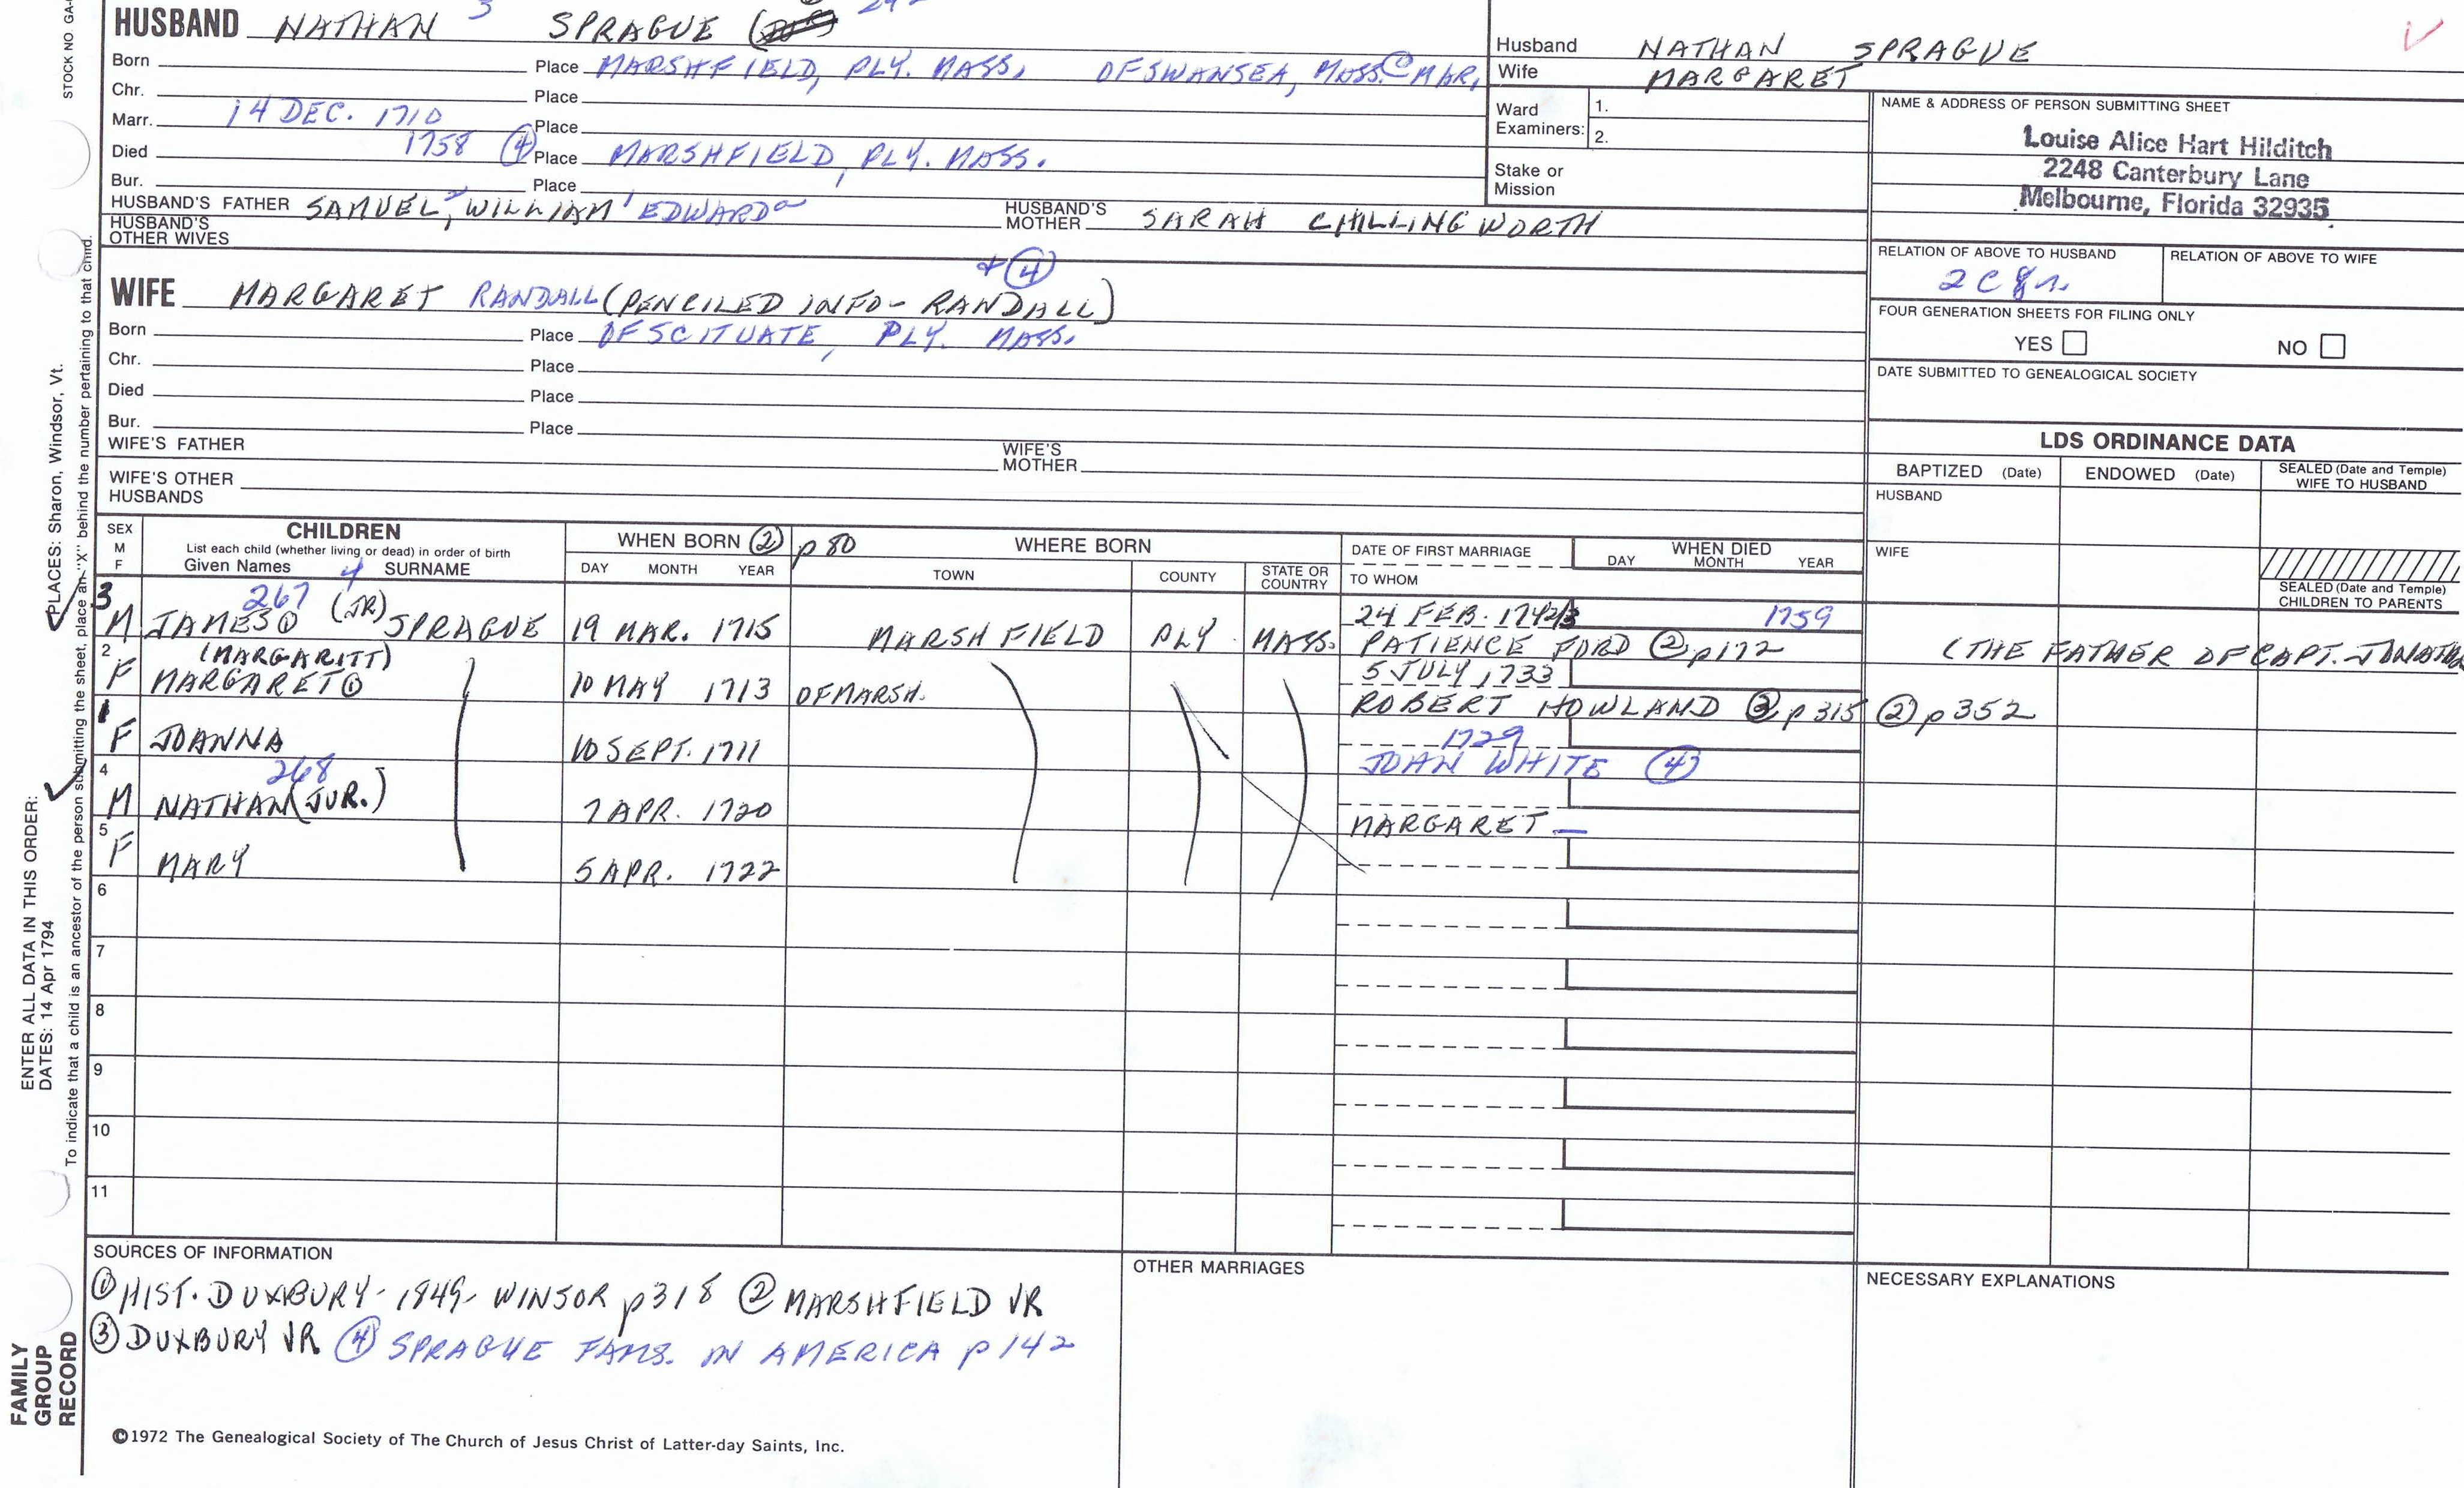 STOCK NO GA
HUSBAND NATHAN 3 SPRAGUE
Born Place MARSHFIELD, PLY. MASS, OF SWANSEA, MASS. @ MAR,
Chr. Place
Marr. 14 DEC. 1710 Place
Died 1758 ④ Place MARSHFIELD, PLY. MASS.
Bur. Place
HUSBAND'S FATHER SAMUEL, WILLIAM EDWARD HUSBAND'S MOTHER SARAH CHILLINGWORTH
HUSBAND'S OTHER WIVES
WIFE MARGARET RANDALL (PENCILED INFO- RANDALL) ④
Born Place OF SCITUATE, PLY. MASS.
Chr. Place
Died Place
Bur. Place
WIFE'S FATHER WIFE'S MOTHER
WIFE'S OTHER HUSBANDS
Husband NATHAN SPRAGUE
Wife MARGARET
Ward Examiners: 1.
2.
Stake or Mission
NAME & ADDRESS OF PERSON SUBMITTING SHEET
Louise Alice Hart Hilditch
2248 Canterbury Lane
Melbourne, Florida 32935
RELATION OF ABOVE TO HUSBAND RELATION OF ABOVE TO WIFE
FOUR GENERATION SHEETS FOR FILING ONLY
YES NO
DATE SUBMITTED TO GENEALOGICAL SOCIETY
LDS ORDINANCE DATA
BAPTIZED (Date) ENDOWED (Date) SEALED (Date and Temple) WIFE TO HUSBAND
HUSBAND
WIFE
SEALED (Date and Temple) CHILDREN TO PARENTS
SEX M F
CHILDREN
List each child (whether living or dead) in order of birth
Given Names SURNAME
WHEN BORN ② p 80
DAY MONTH YEAR
WHERE BORN
TOWN COUNTY STATE OR COUNTRY
DATE OF FIRST MARRIAGE
TO WHOM
WHEN DIED
DAY MONTH YEAR
3 267 4 24 FEB. 1742/3 1759
M JAMES ① (JR) SPRAGUE 19 MAR. 1715 MARSHFIELD PLY. MASS. PATIENCE FORD ② p172 (THE FATHER OF CAPT. JONATHA
2 (MARGARITT) 5 JULY, 1733
F MARGARET ① 10 MAY 1713 OF MARSH. ROBERT HOWLAND ③ p 315 ② p 352
1 1729
F JOANNA 10 SEPT. 1711 JOHN WHITE ④
4 268
M NATHAN (JUR.) 7 APR. 1720 MARGARET —
5
F MARY 5 APR. 1722
6
7
8
9
10
11
SOURCES OF INFORMATION
① HIST. DUXBURY- 1849- WINSOR p318 ② MARSHFIELD VR
③ DUXBURY VR ④ SPRAGUE FAMS. IN AMERICA p 142
OTHER MARRIAGES
NECESSARY EXPLANATIONS
©1972 The Genealogical Society of The Church of Jesus Christ of Latter-day Saints, Inc.
ENTER ALL DATA IN THIS ORDER:
DATES: 14 Apr 1794
PLACES: Sharon, Windsor, Vt.
To indicate that a child is an ancestor of the person submitting the sheet, place an "X" behind the number pertaining to that child.
FAMILY
GROUP
RECORD